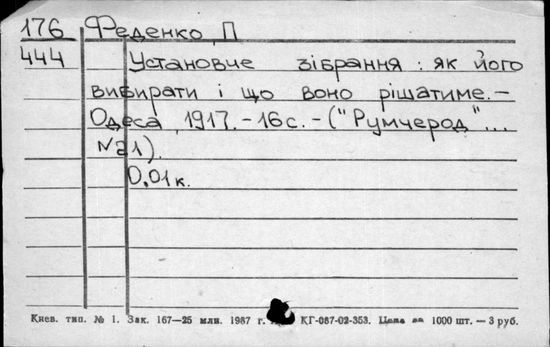 176 Феденко, П
444 Установче зібрання: як його
вибирати і що воно рішатиме.–
Одеса, 1917.–16с.–("Румчерод"...
№21).
0,01к.
Киев. тип. № 1. Зак. 167—25 млн. 1987 г. КГ-087-02-353. Цена за 1000 шт. — 3 руб.